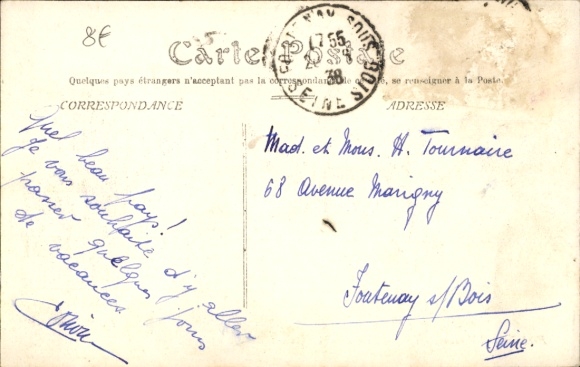 8€
Carte Postale
Quelques pays étrangers n'acceptent pas la correspondance de ce côté, se renseigner à la Poste.
CORRESPONDANCE
ADRESSE
FONTENAY SOUS BOIS
17 55
38
SEINE
Quel beau pays!
Je vous souhaite d'y aller
passer quelques jours
de vacances
Mad. et Mons. H. Tournaire
68 Avenue Marigny
Fontenay s/Bois
Seine.